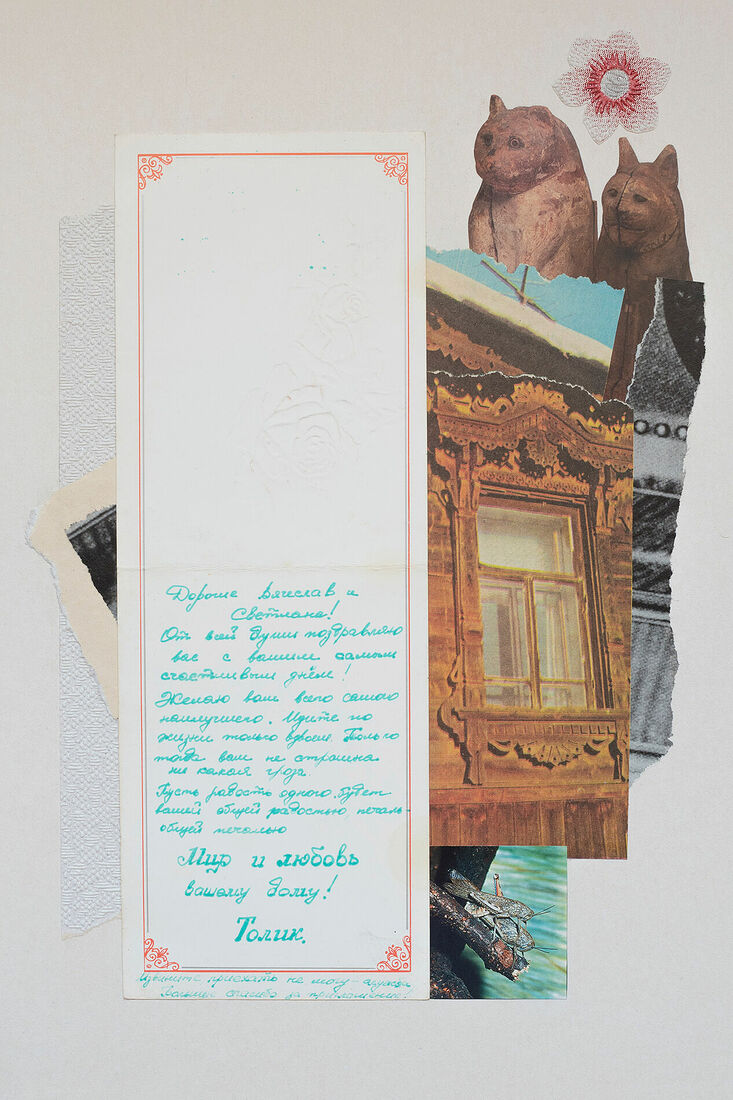 Дорогие Вячеслав и
Светлана!
От всей души поздравляю
вас с вашим самым
счастливым днём!
Желаю вам всего самого
наилучшего. Идите по
жизни только вдвоем. Только
тогда вам не страшна
ни какая гроза.
Пусть радость одного будет
вашей общей радостью, печаль-
общей печалью
Мир и любовь
вашему дому!
Толик.
Извините приехать не могу - служба
Большое спасибо за приглашение!